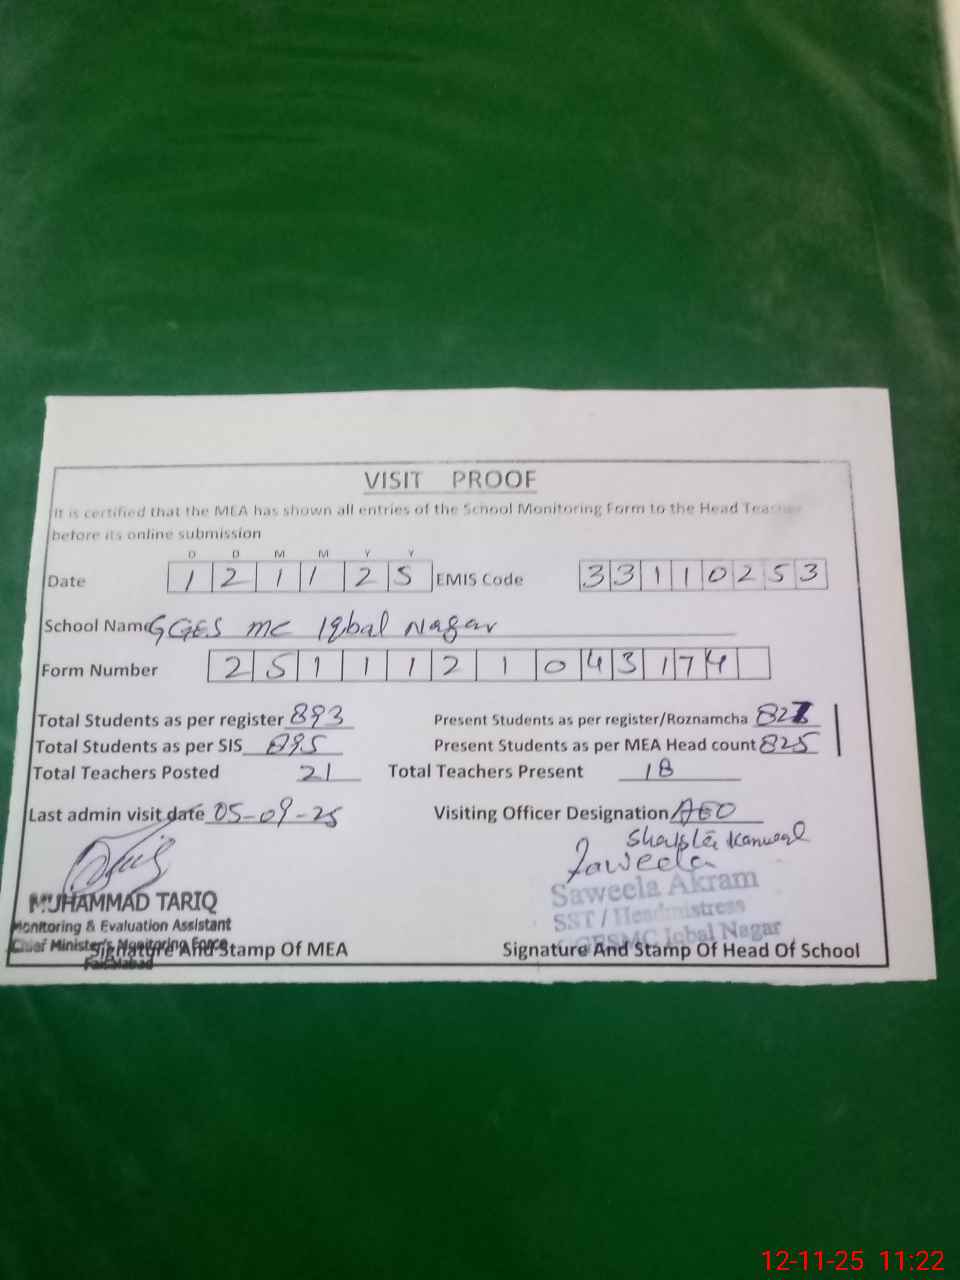 VISIT PROOF
It is certified that the MEA has shown all entries of the School Monitoring Form to the Head Teacher
before its online submission
D D M M Y Y
Date 1 2 1 1 2 5 EMIS Code 3 3 1 1 0 2 5 3
School Name GGES MC Iqbal Nagar
Form Number 2 5 1 1 1 2 1 0 4 3 1 7 4
Total Students as per register 893 Present Students as per register/Roznamcha 827
Total Students as per SIS 895 Present Students as per MEA Head count 825
Total Teachers Posted 21 Total Teachers Present 18
Last admin visit date 05-09-25 Visiting Officer Designation AEO
Shaista Kanwal
Saweela
MUHAMMAD TARIQ
Monitoring & Evaluation Assistant
Chief Minister's Monitoring Force
Faisalabad
Saweela Akram
SST / Headmistress
MC Iqbal Nagar
Signature And Stamp Of MEA Signature And Stamp Of Head Of School
12-11-25 11:22